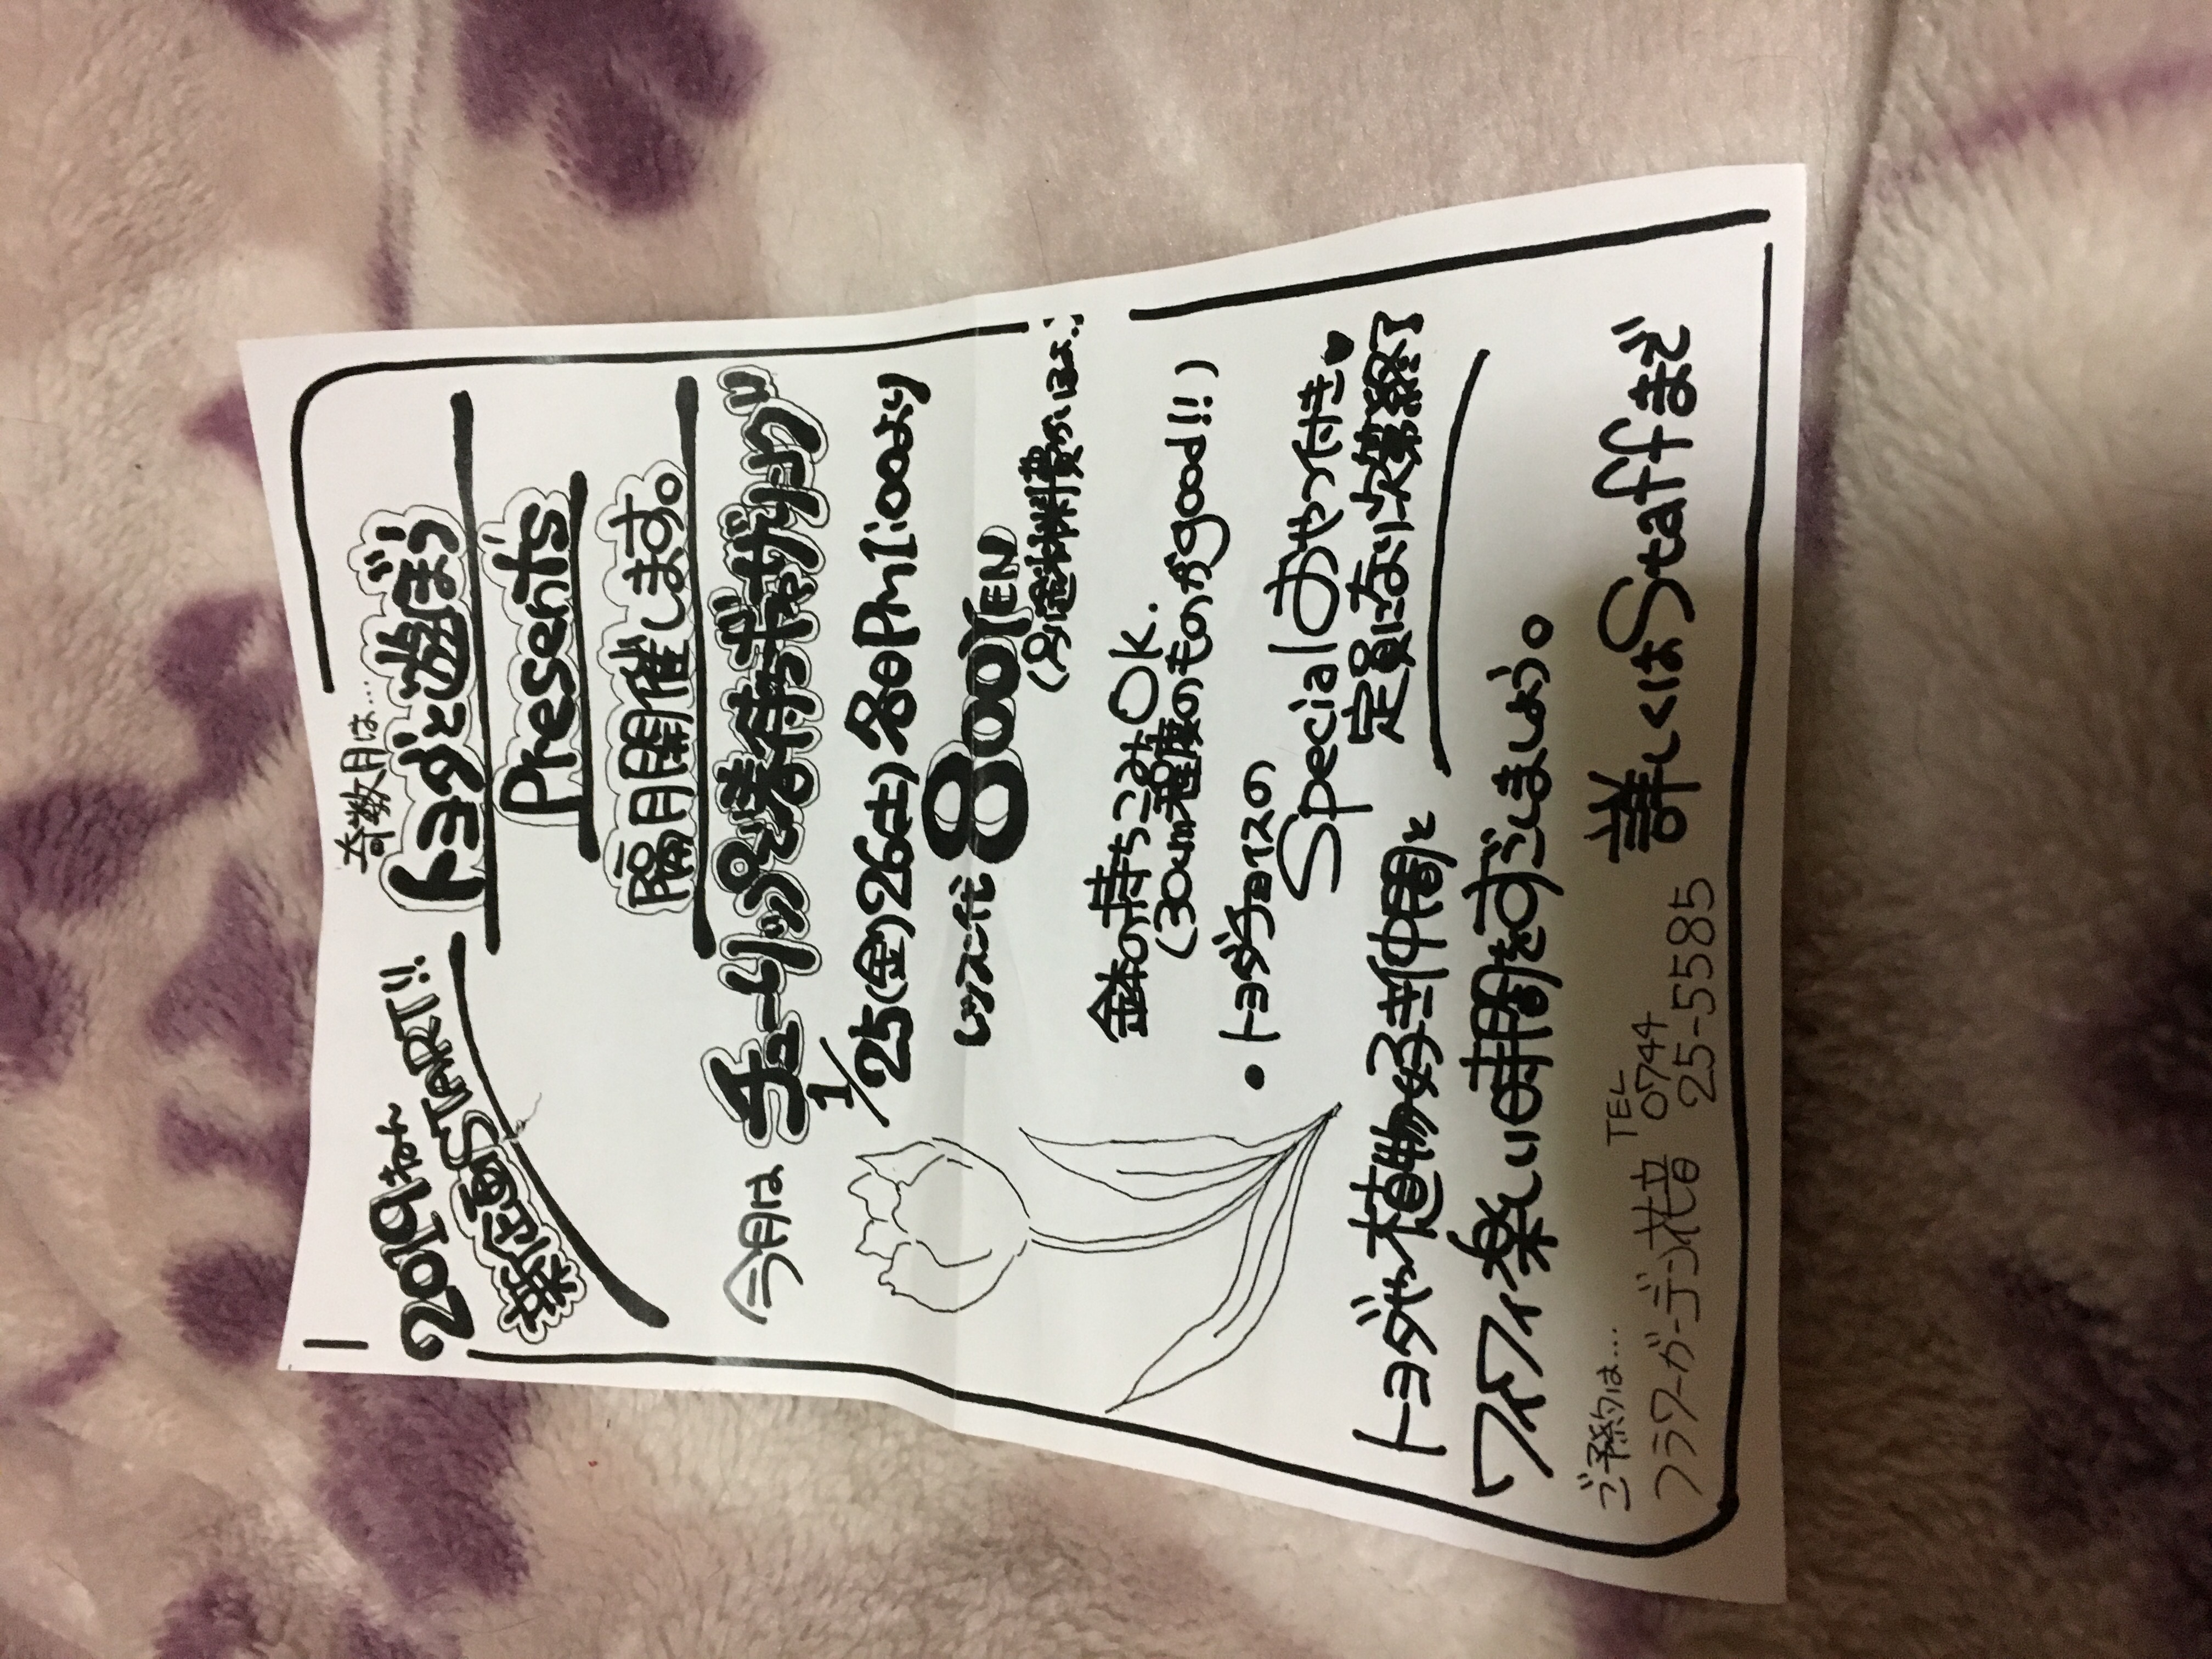 2019ねん~
新企画START!!
奇数月は...
トヨダと遊ぼう
Presents
隔月開催します。
今月は
チューリップの寄せ植えギャザリング"
1/25(金)26(土)各日Pm1:00より
レッスン代800YEN
(別途材料費がいるよ..)
鉢の持ちこみOK.
(30cm程度のものがgood!!)
•トヨダチョイスの
Specialおやつ付き♥
定員になり次第終了
トヨダや植物好き仲間と
ワイワイ楽しい時間をすごしましょう。
ご予約は...
フラワーガーデン花音
TEL
0744
25-5585
詳しくはStaffまで